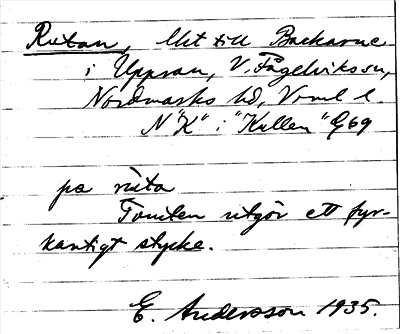 Rutan, lht till Backarne
i Uppsau, V. Fågelvikssn,
Nordmarks hd, Vrml l.
N "K" i "Kullen" G69
pa ruta
Tomten utgör ett fyr-
kantigt stycke.
E. Andersson 1935.